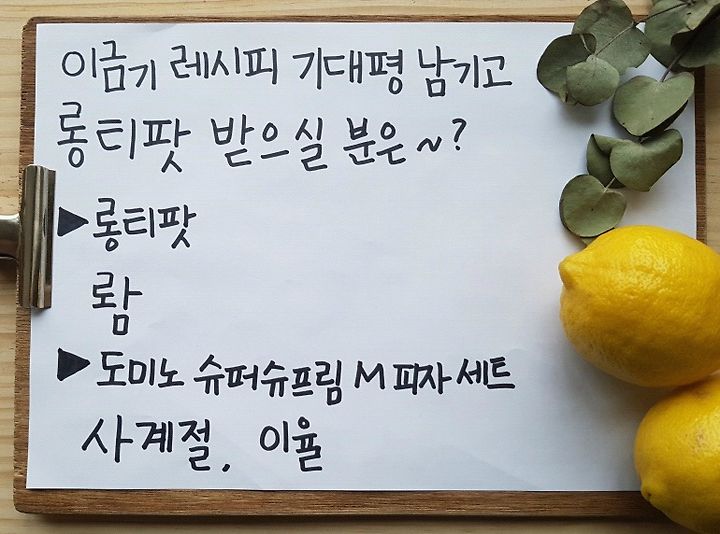 이금기 레시피 기대평 남기고
롱티팟 받으실 분은~?
▶롱티팟
롸
▶도미노 슈퍼슈프림 M 피자 세트
사계절, 이율